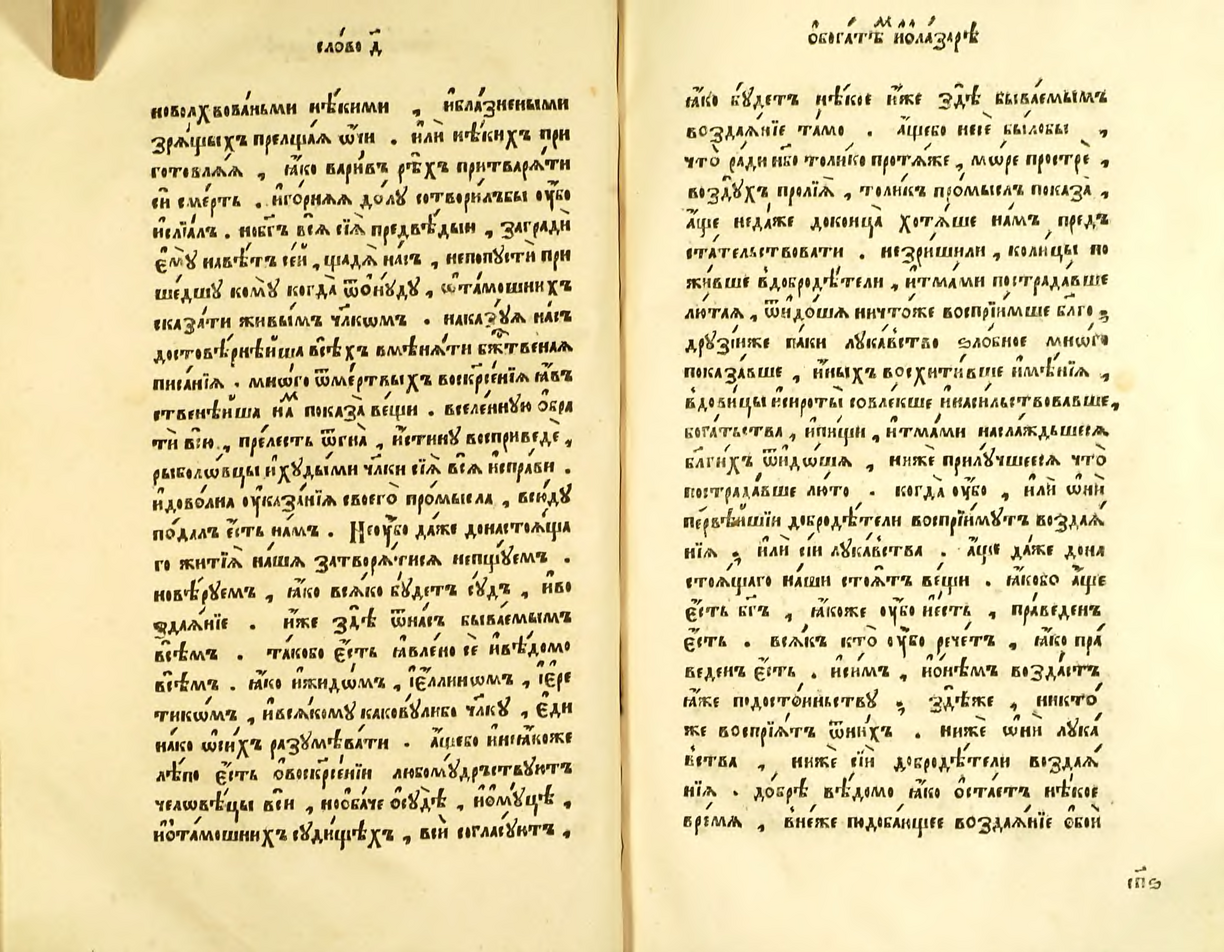 сло́во д҃
новолхвова́ньми нѣ́кими , и҆бла́знеными
зрѧ́щыхъ прелща́ѧ ѿчи . и҆лѝ нѣ́кихъ при
готовлѧ́ѧ , ꙗ҆́ко варѝвъ рѣ́хъ притварѧ́ти
сѝ сме́рть . и҆го́рнѧѧ до́лу сотвори́лъбы ᲂу҆́бо
и҆слїа́лъ . нобг҃ъ всѧ̀ сїѧ̑ предвѣ́дыи , загради̏
є҆мꙋ̀ навѣ́тъ се́й , щадѧ̀ на́съ , непопꙋстѝ при
ше́дшꙋ комꙋ̀ когда̀ ѿѻ҆нꙋ́дꙋ , ѡ҆та́мошнихъ
сказа́ти живы̑мъ чл҃кѡмъ . накаꙁꙋ́ѧ на́съ
достовѣ́рнѣйша всѣ́хъ вмѣнѧ́ти бжⷭ҇твеная
писа́нїѧ . мно́гѡ ѿме́ртвыхъ воскрⷭ҇е́нїѧ ꙗ҆́въ
ственѣ́йша наⷨ показа̀ ве́щи . вселе́ннꙋю ѻ҆бра
тѝ всю̀ , пре́лесть ѿгна̀ , и҆́стинꙋ восприведѐ ,
рыболѡ́вцы и҆хꙋды́ми чл҃ки сїѧ̑ всѧ̑ и҆спра́ви .
и҆дово́лна ᲂу҆каза́нїѧ своегѡ̀ про́мысла , всю́дꙋ
пода́лъ є҆́сть на́мъ . Неᲂу҆́бо да́же донастоѧ́ща
го житїѧ̀ на́ша затворѧ́тисѧ непщꙋ́емъ .
новѣ́рꙋемъ , ꙗ҆́ко всѧ́ко бꙋ́детъ сꙋ́дъ , и҆во
здаѧ́нїе . и҆́же здѣ̀ ѿна́съ быва́емымъ
всѣ́мъ . та́кобо є҆́сть ꙗ҆влено̀ сѐ и҆вѣ́домо
всѣ́мъ . ꙗ҆́ко и҆жидѡ́мъ , і҆є҆́ллинѡмъ , і҆є҆ре
тикѡ́мъ , и҆всѧ́комꙋ каковꙋ́либо чл҃кꙋ , є҆ди
на́ко ѡ҆си́хъ разꙋмѣва́ти . а҆́щебо и҆неꙗ҆́коже
лѣ́по є҆́сть ѻ҆воскрⷭ҇е́нїи любомꙋ́дръствꙋютъ
челѡвѣ́цы всѝ , нооба́че ѻ҆сꙋдѣ̀ , и҆ѻ҆мꙋ́цѣ ,
и҆ѻ҆та́мошнихъ сꙋди́щѣхъ , всѝ согласꙋ́ютъ ,
ѻ҆бога́тѣⷨ и҆ола́зарѣ
ꙗ҆́ко бꙋ́детъ нѣ́кое и҆́же здѣ̀ быва́емымъ
воздаѧ́нїе та́мо . а҆́щебо несѐ бы́лобы ,
что̀ ра́ди нбо толи́ко протѧ́же , мо́ре прострѐ ,
во́здꙋхъ пролїѧ̀ , толи́къ про́мыслъ показа̀ ,
а҆́ще неда́же доконца̀ хотѧ́ше на́мъ предъ
ста́тельствовати . незри́шили , коли́цы по
жи́вше вдобродѣ́тели , и҆тма́ми пострада́вше
лю́таѧ , ѿидо́шѧ ничто́же воспрїи́мше бл҃го ;
дрꙋзїи́же па́ки лꙋка́вство ѕло́бное мно́гѡ
показа́вше , и҆ны́хъ восхити́вше и҆мѣ́нїѧ ,
вдови́цы и҆сиро́ты совлекше и҆наси́льствовавше,
бога́тьства , и҆пи́щи , и҆тма́ми наслажꙿшеесѧ
бл҃ги́хъ ѿидо́шѧ , нижѐ прилꙋ́чшеесѧ что̀
пострада́вше лю́то . когда̀ ᲂу҆́бо , и҆лѝ ѻ҆нѝ
пе́рвѣйшїи добродѣ́тели воспрїи́мꙋтъ воздаѧ́
нїѧ , и҆лѝ сїѝ лꙋка́вства . а҆́ще да́же дона
стоѧ́щаго на́ши стоѧ́тъ ве́щи . ꙗ҆́кобо а҆́ще
є҆́сть бг҃ъ , ꙗ҆́коже ᲂу҆́бо и҆е́сть , пра́веденъ
є҆́сть . всѧ́къ кто̀ ᲂу҆́бо рече́тъ , ꙗ҆́ко пра́
веденъ є҆́сть . и҆си́мъ , и҆ѻ҆нѣ́мъ возда́стъ
ꙗ҆́же подосто́иньствꙋ ; здѣ́же , никто́
же воспрїѧ́тъ ѿни́хъ . нижѐ ѻ҆нѝ лꙋка́
вства , нижѐ сїѝ добродѣ́тели воздаѧ́
нїѧ . до́брѣ вѣ́домо ꙗ҆́ко ѻ҆ста́етъ нѣ́кое
вре́мѧ , вне́же подоба́ющее воздаѧ́нїе ѻ҆боѝ
сп҃ѕ